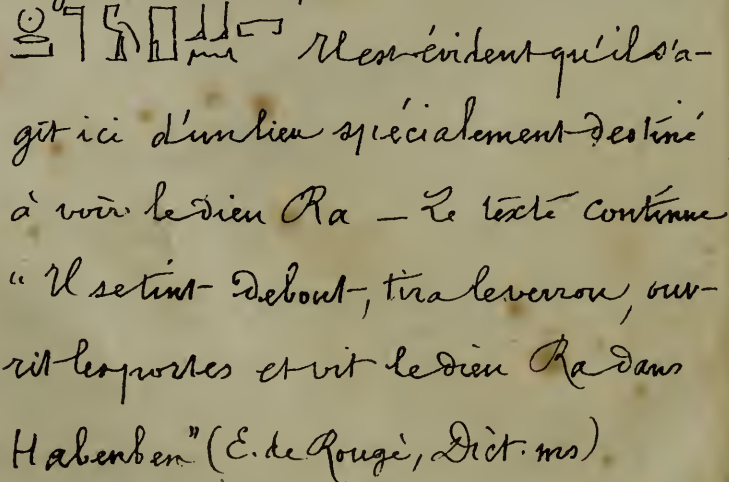 Il est évident qu'il s'a-
git ici d'un lieu spécialement destiné
à voir le dieu Ra — Le texte continue
"Il se tint debout, tira le verrou, ouv-
rit les portes et vit le dieu Ra dans
Habenben" (E. de Rougé, Dict. ms)